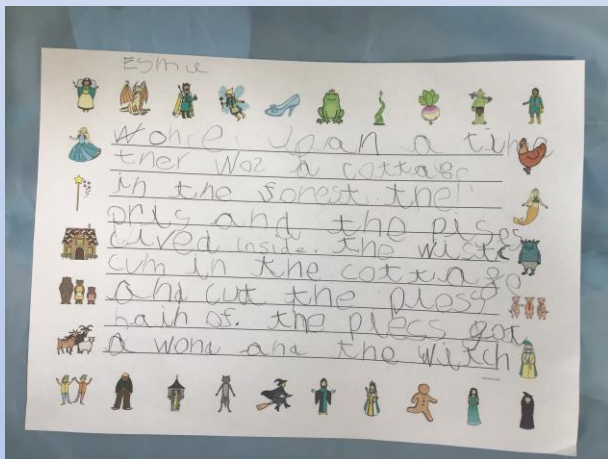 Esmie
Wonce upan a time
ther woz a cottage
in the forest. the
pris and the pises
lived inside. the wicte
cum in the cottage
and cut the pless
hair of. the plecs got
a wond and the witch